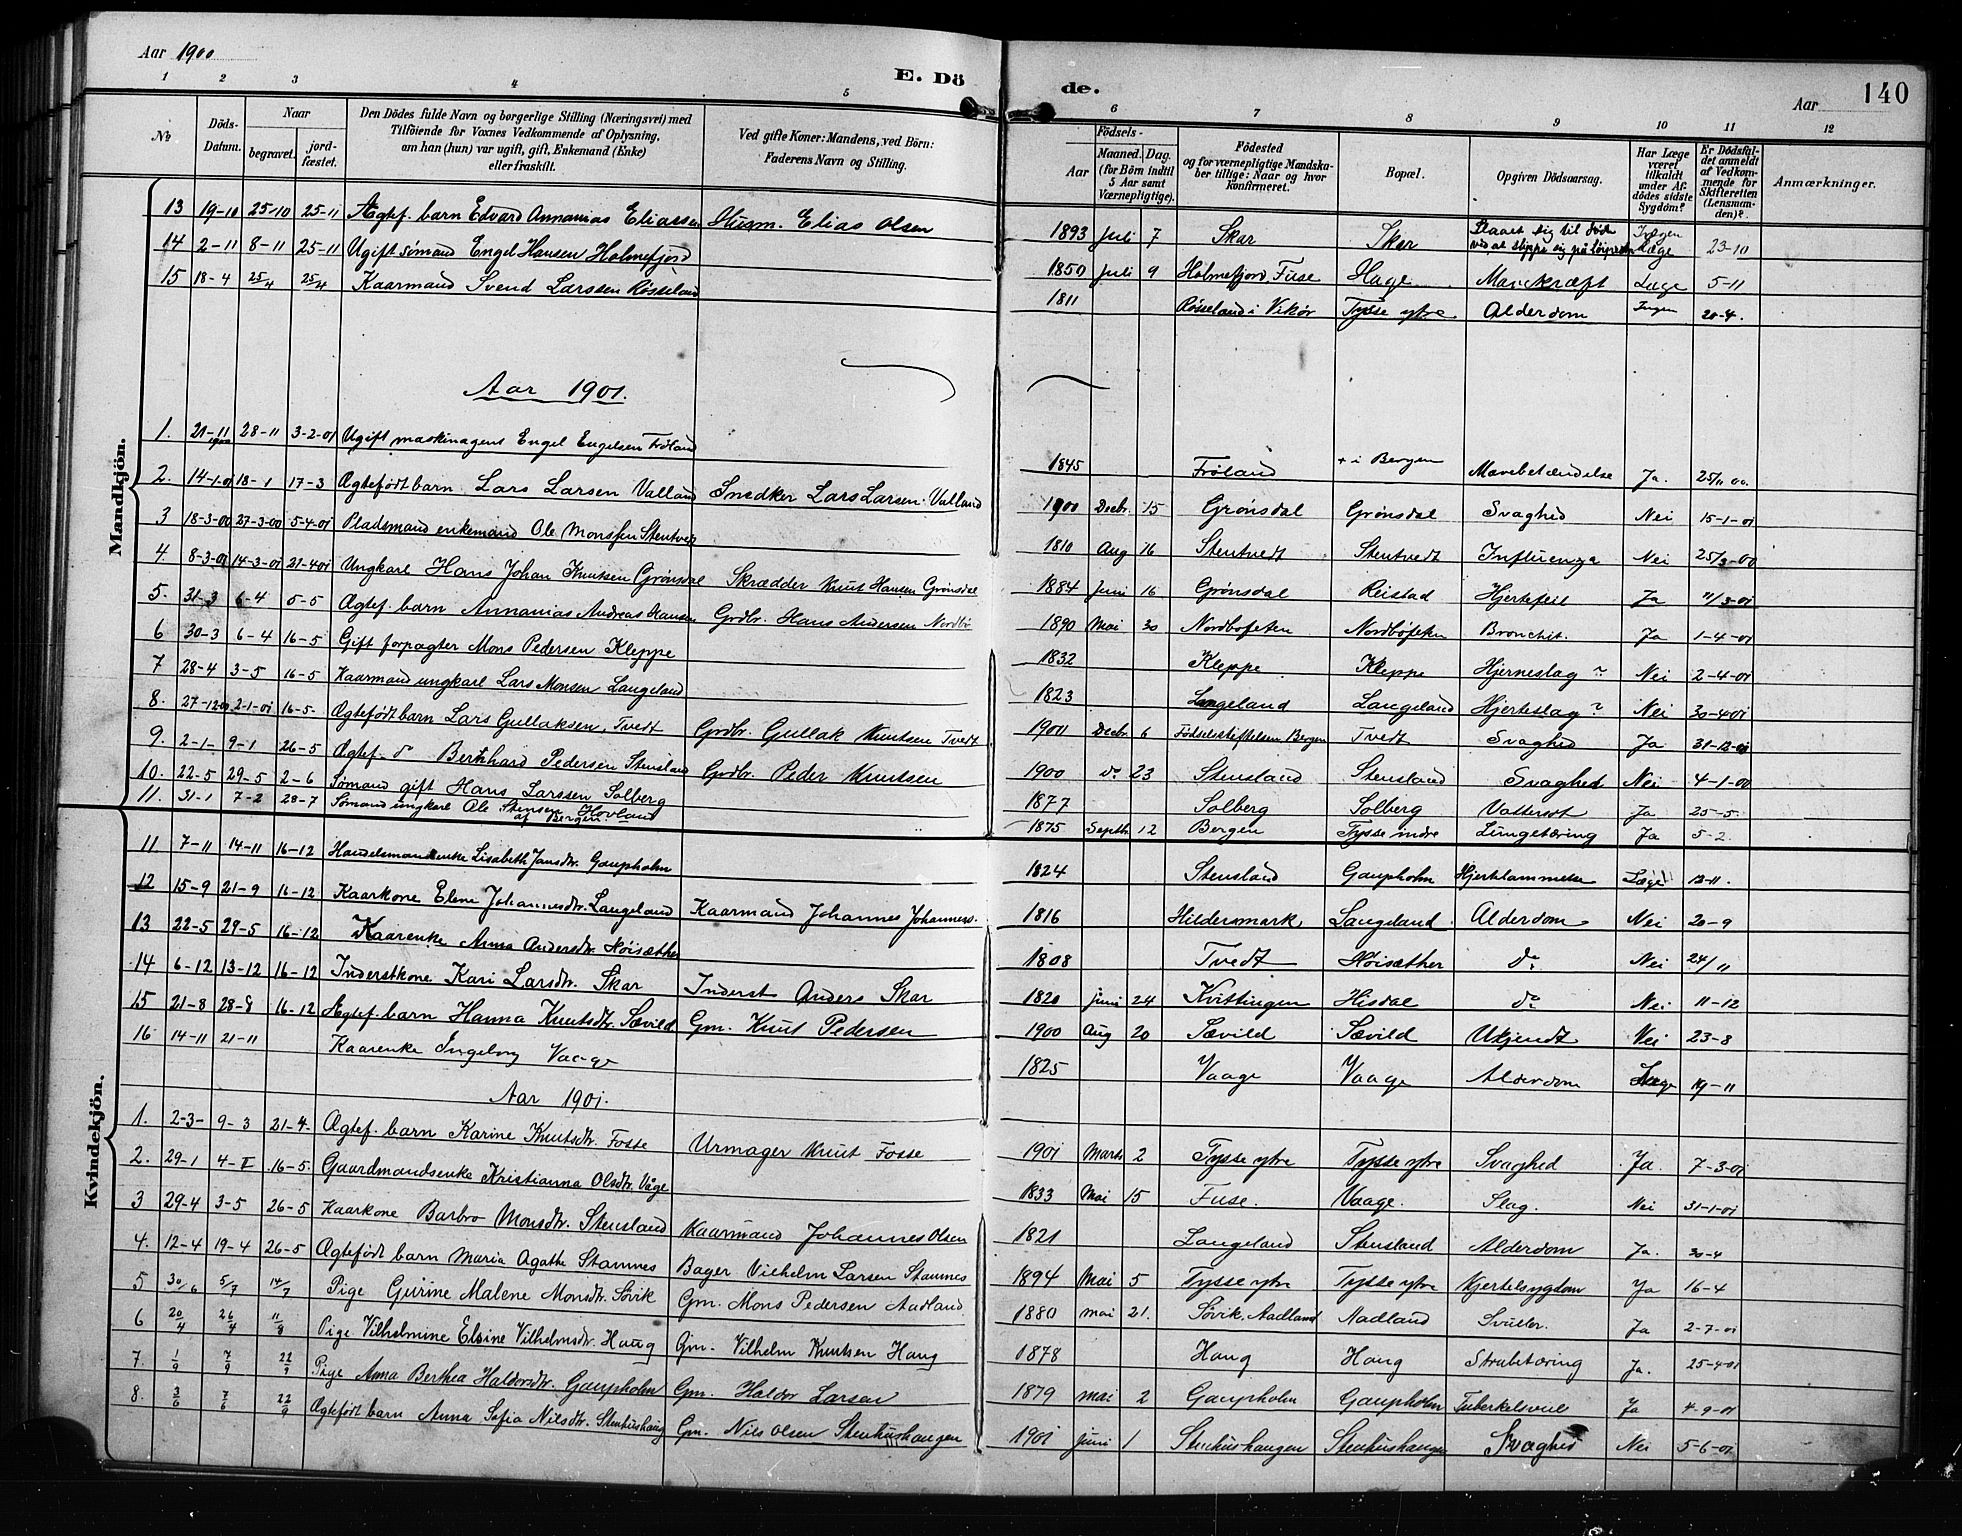 Aar 1900
E. Dö
de.
Aar
140
1 2 3 4 5 6 7 8 9 10 11 12
№
Döds-Datum.
Naar
begravet.
jord-fæstet.
Den Dödes fulde Navn og borgerlige Stilling (Næringsvei) med
Tilföiende for Voxnes Vedkommende af Oplysning,
om han (hun) var ugift, gift, Enkemand (Enke)
eller fraskilt.
Ved gifte Koner: Mandens, ved Börn:
Faderens Navn og Stilling.
Födsels-
Aar
Maaned. Dag.
(for Börn indtil
5 Aar samt
Værnepligtige).
Födested
og for værnepligtige Mandska-
ber tillige: Naar og hvor
konfirmeret.
Bopæl.
Opgiven Dödsaarsag.
Har Læge
været
tilkaldt
under Af-
dödes sidste
Sygdom?
Er Dödsfal-
det anmeldt
af Vedkom-
mende for
Skifteretten
(Lensman-
den)?
Anmærkninger.
Mandkjön.
13 19-10 25-10 25-11 Ægtef. barn Edvard Annanias Eliassen Husm. Elias Olsen 1893 Juli 7 Skar Skar Slaaet sig til døde ved at slippe sig på Ingen Læge 23-10
14 2-11 8-11 25-11 Ugift sømand Engel Hansen Holmefjord 1850 Juli 9 Holmefjord, Fuse Hage Mavekræft Læge 5-11
15 18-4 25/4 25/4 Kaarmand Svend Larssen Røsseland 1811 Røsseland i Vikør Tysse ytre Alderdom Ingen 20-4.
Aar 1901.
1. 21-11 1900 28-11 3-2-01 Ugift maskinagent Engel Engelsen Frøland 1845 Frøland + i Bergen Mavebetændelse Ja. 25/11 00.
2. 14-1-01 18-1 17-3 Ægtefødt barn Lars Larsen Valland Snedker Lars Larsen Valland 1900 Decbr. 15 Grønsdal Grønsdal Svaghed Nei 15-1-01
3 18-3-00 27-3-00 5-4-01 Pladsmand enkemand Ole Monssen Stentvedt 1810 Aug 16 Stentvedt Stentvedt Influenza Nei 25/3-00
4. 8-3-01 14-3-01 21-4-01 Ungkarl Hans Johan Knutsen Grønsdal Skrædder Knut Hansen Grønsdal 1884 Juni 16 Grønsdal Reistad Hjertefeil Ja 11/3-01
5. 31-3 6-4 5-5 Ægtef. barn Annanias Andreas Hansen Grdbr. Hans Andersen Nordbø 1890 Mai 30 Nordbøfeten Nordbøfeten Bronchit. Ja 1-4-01
6 30-3 6-4 16-5 Gift forpagter Mons Pedersen Kleppe 1832 Kleppe Kleppe Hjerneslag? Nei 2-4-01
7 28-4 3-5 16-5 Kaarmand ungkarl Lars Monsen Langeland 1823 Langeland Langeland Hjerteslag? Nei 30-4-01
8. 27-12-00 2-1-01 16-5. Ægtefødt barn Lars Gullaksen Tvedt Grdbr. Gullak Knutsen Tvedt 1900 Decbr. 6 Fødselsstiftelsen Bergen Tvedt Svaghed Ja 31-12-00
9. 2-1- 9-1 26-5 Ægtef. do Berthard Pedersen Stensland Grdbr. Peder Knutsen 1900 do 23 Stensland Stensland Svaghed Nei 4-1-00
10. 22-5 29-5 2-6 Sømand gift Hans Larssen Solberg 1877 Solberg Solberg Vattersot Ja 25-5.
11. 31-1 7-2 28-7 Sømand ungkarl Ole Stensen Hovland af Bergen 1875 Septbr. 12 Bergen Tysse indre Lungetæring Ja 5-2.
Kvindekjön.
11 7-11 14-11 16-12 Handelsmandsenke Lisabeth Jansdtr. Gaupholm 1824 Stensland Gaupholm Hjertelammelse Læge 12-11.
12 15-9 21-9 16-12 Kaarkone Elene Johannesdtr. Langeland Kaarmand Johannes Johanness. 1816 Hildersmark Langeland Alderdom Nei 20-9
13 22-5 29-5 16-12 Kaarenke Anna Andersdtr. Høisæther 1808 Tvedt Høisæther do Nei 24/11
14 6-12 13-12 16-12 Inderstkone Kari Larsdtr. Skar Inderst Anders Skar 1820 juni 24 Kvittingen Hisdal do Nei 11-12
15 21-8 28-8 16-12 Ægtef. barn Hanna Knutsdtr. Sævild Gm. Knut Pedersen 1900 Aug 20 Sævild Sævild Ukjendt Nei 23-8
16 14-11 21-11 Kaarenke Ingeborg Vaage 1825 Vaage Vaage Alderdom Læge 19-11
Aar 1901.
1. 2-3- 9-3 21-4. Ægtef. barn Karine Knutsdtr. Fosse Urmager Knut Fosse 1901 Marts 2 Tysse ytre Tysse ytre Svaghed Ja. 7-3-01
2. 29-1 4-II 16-5. Gaardmandsenke Kristianna Olsdtr. Våge 1833 Mai 15 Fuse. Vaage. Slag. Nei 31-1-01
3 29-4 3-5 26-5 Kaarkone Barbro Monsdtr. Stensland Kaarmand Johannes Olsen 1821 Langeland Stensland Alderdom Ja. 30-4
4. 12-4 19-4 26-5 Ægtefødt barn Maria Agathe Stamnes Bager Vilhelm Larsen Stamnes 1894 Mai 5 Tysse ytre Tysse ytre Kjertelsygdom Ja 16-4
5 30/6 5/7 14/7 Pige Gurine Malene Monsdtr. Søvik Gm. Mons Pedersen Aadland. 1880 mai 21. Søvik, Aadland Aadland Svulst. Ja 2-7-01
6 20/4 26/4 11/8 Pige Vilhelmine Elsine Vilhelmsdtr. Haug Gm. Vilhelm Knutsen Haug 1878 Haug Haug Strubetæring Ja. 25-4-01
7. 1/9 7/9 22/9 Pige Anna Berthea Haldorsdtr. Gaupholm Gm. Haldor Larsen 1879 mai 2 Gaupholm Gaupholm Tuberkelsvul Ja 4-9-01
8. 3/6 7/6 22/9 Ægtefødt barn Anna Sofia Nilsdtr. Stenhushaug Gm. Nils Olsen Stenhushaugen 1901 Juni 1 Stenhushaugen Stenhushaugen Svaghed Nei 5-6-01